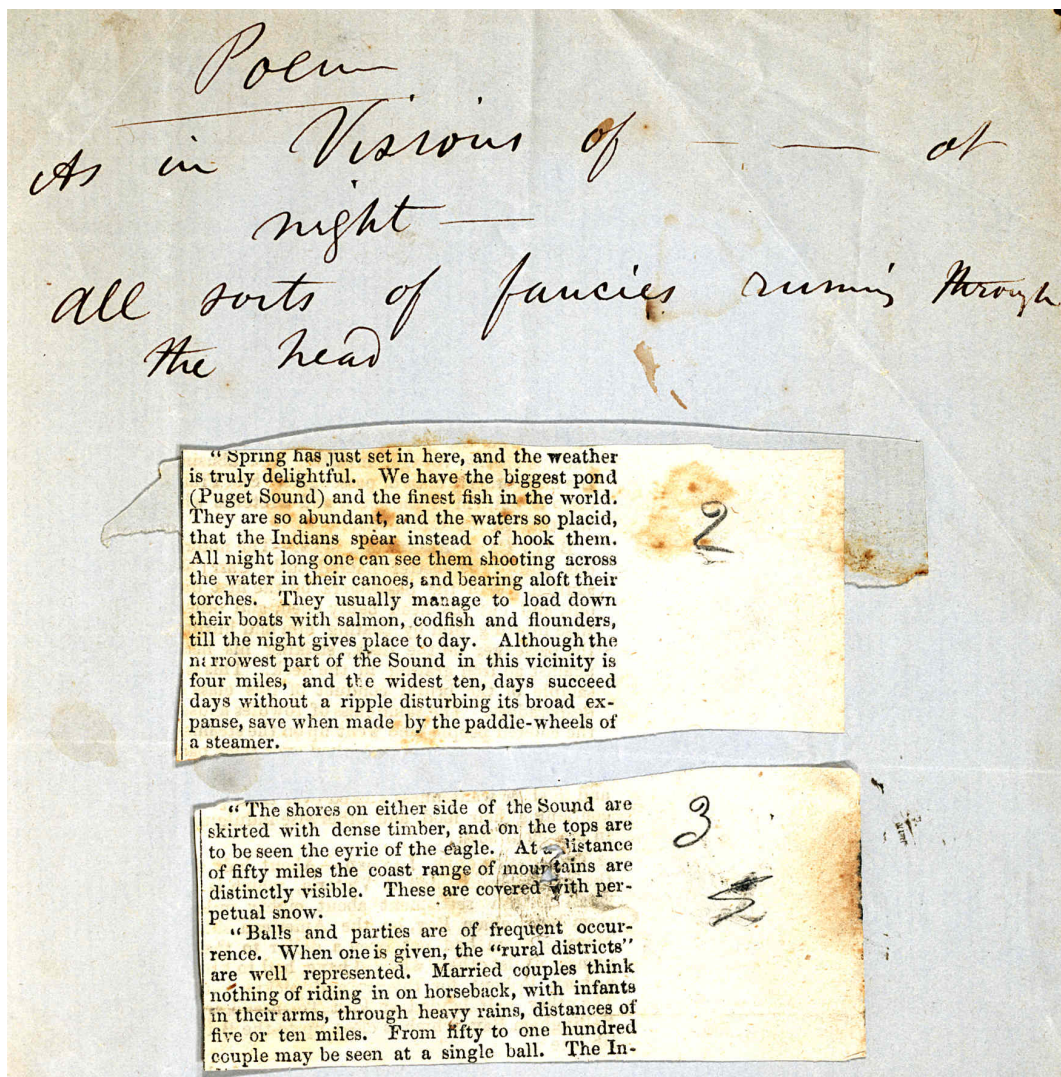 Poem
As in Visions of — — at
night —
All sorts of fancies running through
the head
"Spring has just set in here, and the weather
is truly delightful. We have the biggest pond
(Puget Sound) and the finest fish in the world.
They are so abundant, and the waters so placid,
that the Indians spear instead of hook them.
All night long one can see them shooting across
the water in their canoes, and bearing aloft their
torches. They usually manage to load down
their boats with salmon, codfish and flounders,
till the night gives place to day. Although the
narrowest part of the Sound in this vicinity is
four miles, and the widest ten, days succeed
days without a ripple disturbing its broad ex-
panse, save when made by the paddle-wheels of
a steamer.
2
"The shores on either side of the Sound are
skirted with dense timber, and on the tops are
to be seen the eyrie of the eagle. At a distance
of fifty miles the coast range of mountains are
distinctly visible. These are covered with per-
petual snow.
"Balls and parties are of frequent occur-
rence. When one is given, the "rural districts"
are well represented. Married couples think
nothing of riding in on horseback, with infants
in their arms, through heavy rains, distances of
five or ten miles. From fifty to one hundred
couple may be seen at a single ball. The In-
3